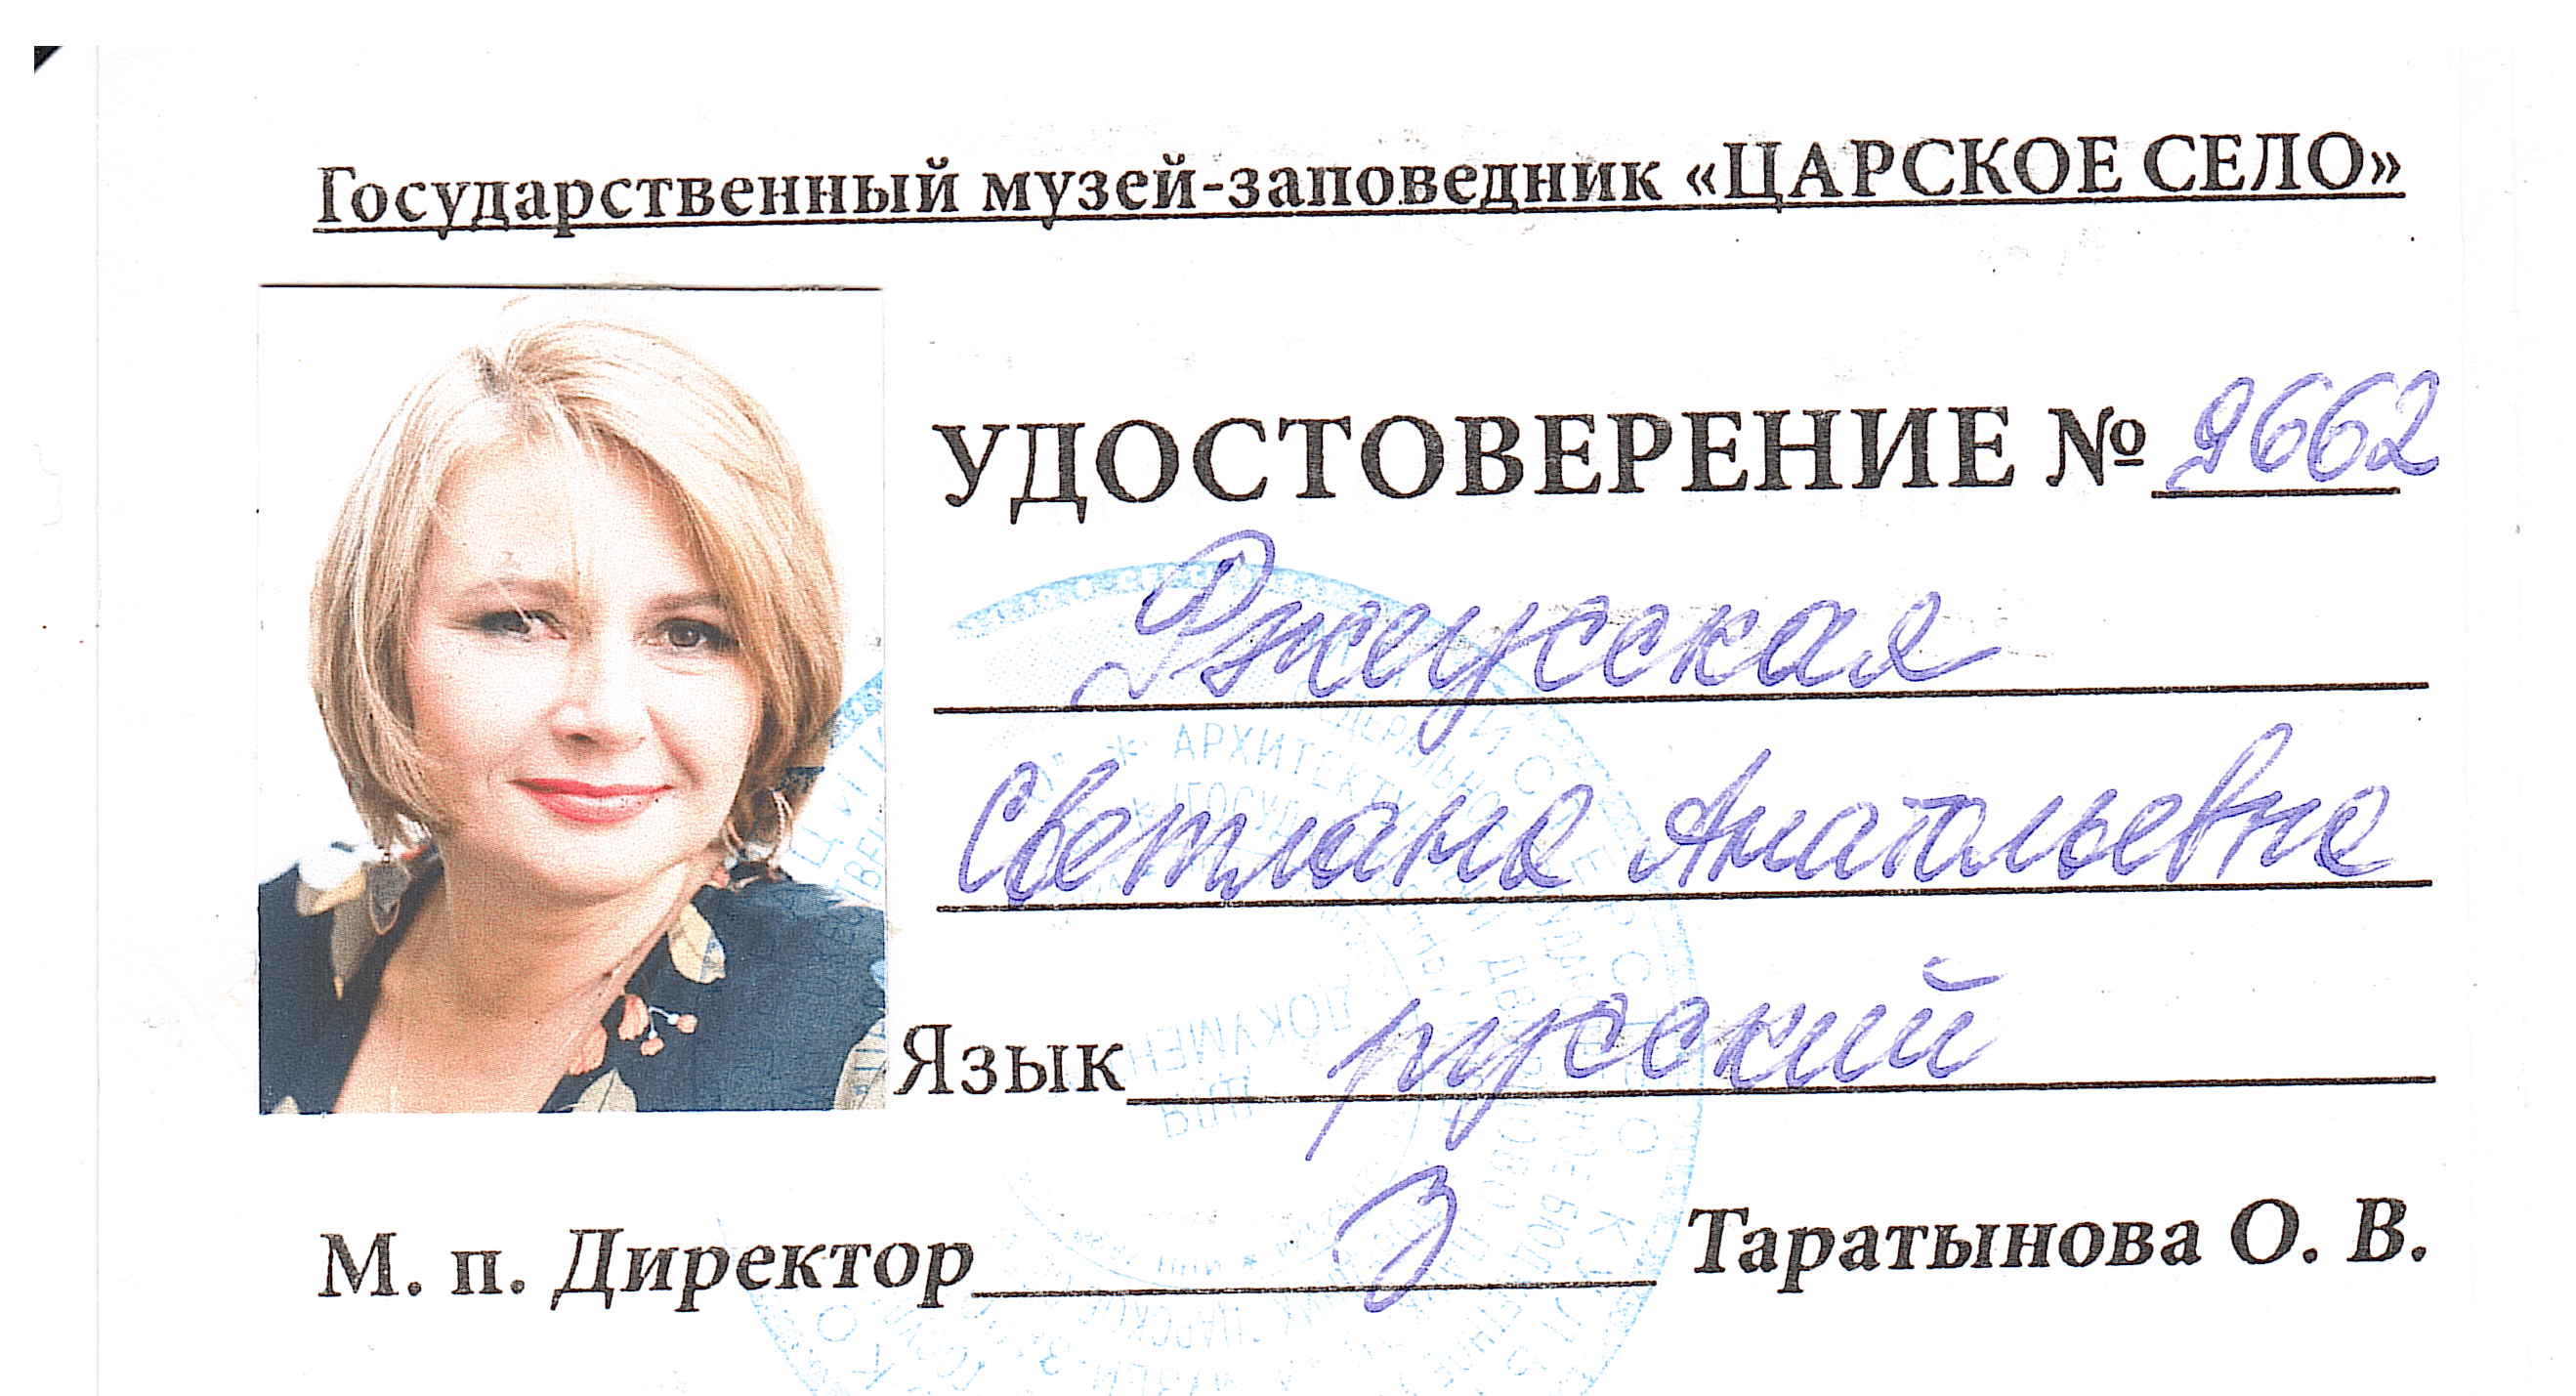 Государственный музей-заповедник «ЦАРСКОЕ СЕЛО»
УДОСТОВЕРЕНИЕ № 9662
Ржеусская
Светлана Анатольевна
Язык русский
М. п. Директор Таратынова О. В.